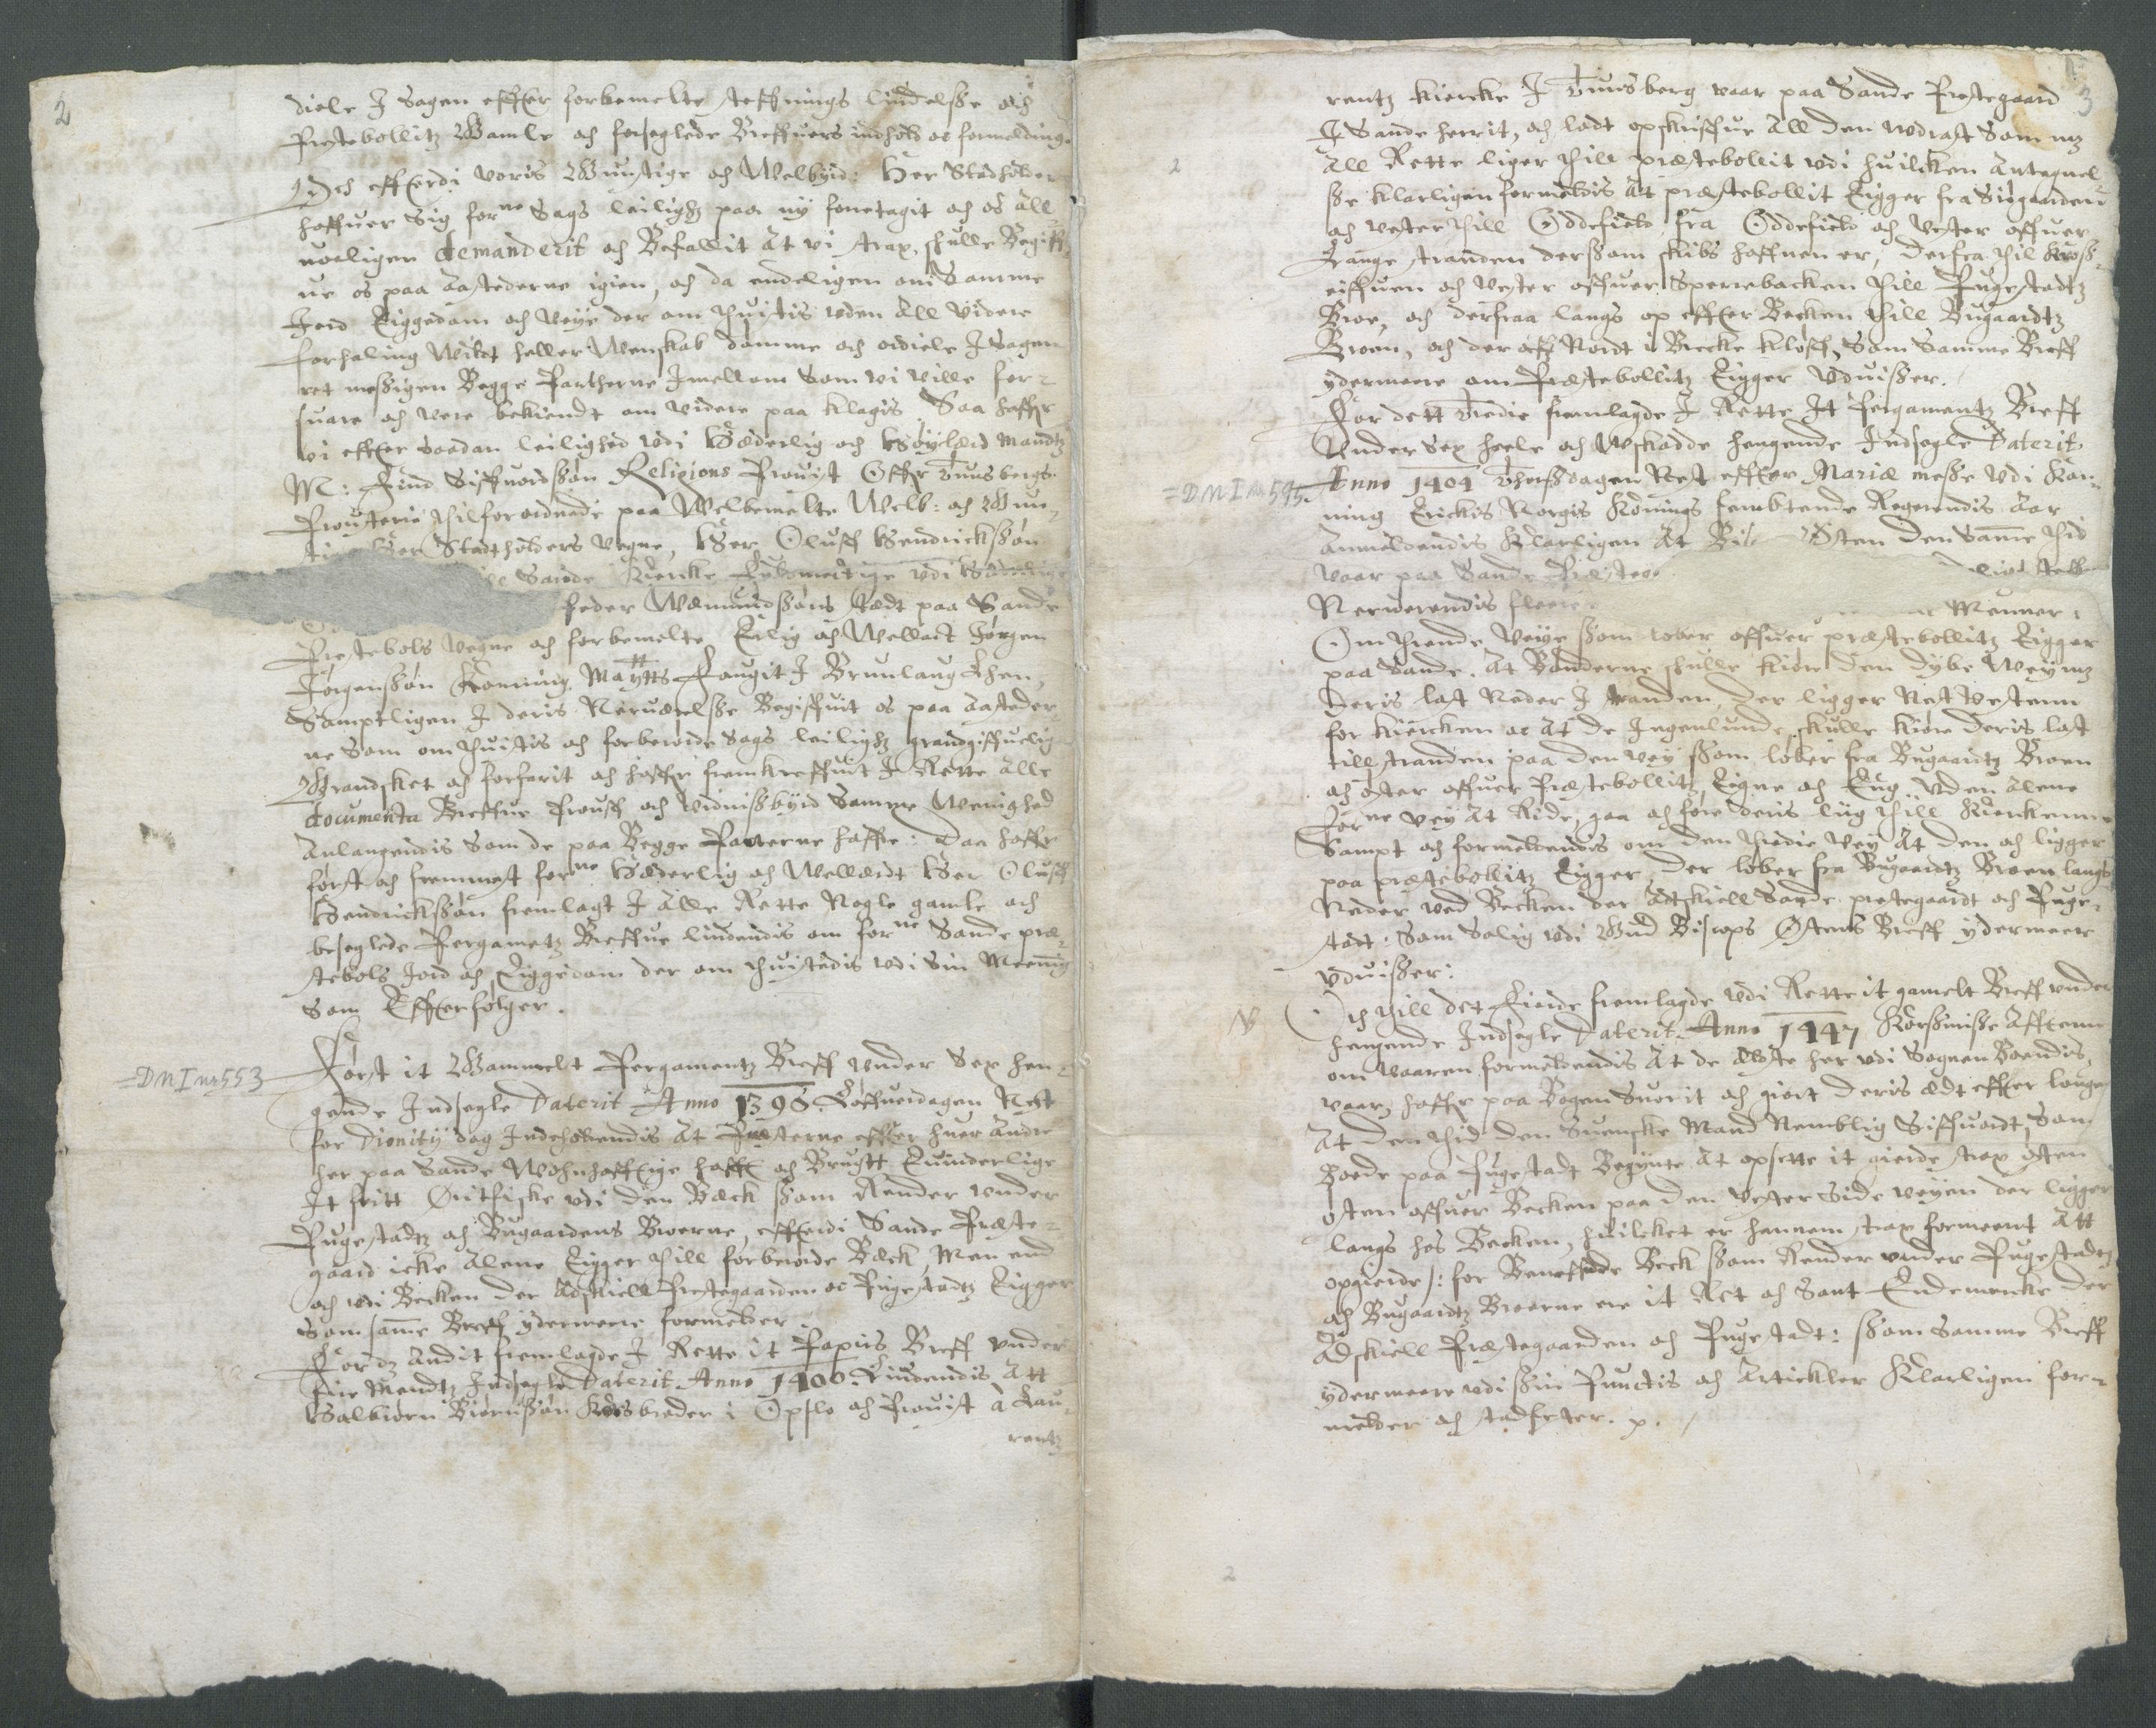 2
diele I Sagen effter forbemelte steffnings liudelsse och
Prestebollitz Gamle och forseglede Breffuers indhold oc formelding.
Och effterdi voris Gunstige och Welbyrd: Her Stadtholder
haffuer Sig forne Sags leilighz paa ny foretagit och os all
uorligen demanderit och Befallit At vi strax, skulle Begiff¬
ue os paa Aastederne igien, och da endeligen om Samme
Jord Eiggedom och Veye der om thuistis uden All videre
forhaling Wildt heller Wenskab domme och ordiele I Sagen
ret messigen Begge Partherne Imellom Som vi ville for¬
suare och vere bekiendt om videre paa klagis Saa haffr
vi effter saadan leilighed udi Hæderlig och Høylærd Mandtz
M: Find Siffuordssøn Religions Prouist Offr Tunsbergs
Prousterie thilforordnede paa Welbemelte Welb: och Gun¬
stige Her Stadtholders Vegne, Her Oluff Hendrickssøn
Sande Kiercke
Peder Wæmundssøns stedt paa Sande
Prestebols vegne och forbemelte Erlig och Wellact Jørgen
Jørgenssøn Koning. Maytts Fougit I Brunlaug Lhen,
Samptligen I deris Neruærelsse Begiffuit os paa Aasteder¬
ne Som om thuistis och forberørde Sags leilighz grandgiffuelig
Grandsket och forfarit och haffr fremkreffuit I Rette alle
documenta Breffue Prouff och Vidnissbyrd Samme Wenighed
Anlangendis Som de paa Begge Parterne haffe: Daa haffr
først och fremmest forne Hæderlig och Wellærdt Her Oluff
Hendrickssøn fremlagt I alle Rette Nogle gamle och
beseglede Pergametz Breffue liudendis om forne Sande præ¬
stebols Jord och Eiggedom der om thuistedis udi Sin Meening
Som Effterfølger.
=DN I nr 553
Først it Gammelt Pergamentz Breff under Sex hen¬
gende Indsegle Daterit Anno 1396. Løffuerdagen Nest
for Dionity dag Indeholdendis At Præsterne effter huer Andre
her paa Sande Wohnhafftige hafft och Brugtt Euinderlige
It fritt Ørritfiske udi den Bæck ssom Render under
Pugestadtz och Bugaardens Broerne, effterdi Sande Præste¬
gaard icke Alene Eigger thill forberørde Bæck, Men end
och udi Becken der Adskiell Prestegaarden oc Pugestadtz Eigger
Som samme Breff ydermeere formelder.
For dz Andit fremlagde I Rette it Papirs Breff under
fire Mendtz Indsegle Daterit Anno 1400. Liudendis Att
Halbiørn Biørnssøn Korsbroder i Opslo och Prouist à Lau¬
rentz
3
2
rentz Kiercke I Tunsberg vaar paa Sande Prestegaard
I Sande herrit, och lodt opskriffue All den Udrast Som mz
All Rette liger thill præstebollit udi huilcken Antegnel
sse klarligen formeldis At præstebollit Eigger fra Sugaarden
och vester thill Oddefield, fra Oddefield och Vester offuer
Lange stranden derssom skibs haffnen er, Derfra thil Kross¬
eiffuen och Vester offuer Sperrebacken thill Pugestadtz
Broe, och derfraa langs op effter Becken thill Bugaardtz
Broen, och der aff Nordt i Brecke kløff, Som Samme Breff
ydermeere om Præstebollitz Eigger Uduisser.
For dett Tredie fremlagde I Rette It Pergamentz Breff
Under Sex heele och Uskadde hengende Indsegle Daterit
=DN I nr 595
Anno 1404 Thorssdagen Nest effter Mariæ messe udi Kon¬
ning Erickis Norgis Konings fembtende Regerendis Aar
Anmeldendis Klarligen At Østen den Samme thid
vaar paa Sande
Nerverendis fleere Menner:
Om thrende Veye ssom løber offuer præstebollitz Eigger
paa Sande. At Bønderne skulle kiøre den dybe Wey mz
Deris last Neder I stranden, der ligger Nest Vesten
for Kiercken oc At de Ingenlunde skulle kiøre deris last
till stranden paa den Vey ssom løber fra Bugaardtz Broen
och øster offuer Præstebollitz Eigne och Eng. Uden Alene
forne Vey At Ride, gaa och føre deris liig thill Kiercken
Sampt och formeldendis om den thredie Vey At den och ligger
paa præstebollitz Eigger, der løber fra Bugaardtz Broen langs
Neder ved Becken der Adtskiell Sande prestegaardt och Puge¬
stadt: Som Salig udi Gud Bisops Østens Breff ydermeere
Uduisser:
NB
Och thill det Fierde fremlagde udi Rette it gamelt Breff under
hengende Indsegle Daterit. Anno 1447 Korssmisse Afften
om Vaaren formeldendis At de Ældste her udi Sognen Boendis
vaar, haffr paa Bogen Suorit och giort deris Ædt effter lougen
At den thid den Suenske Mand Nemblig Siffuordt, Som
Boede paa Pugestadt Begynte At opsette it gierde strax østen
østen offuer Becken paa den Vester Side Veyen der ligger
langs hos Becken, huilcket er hannem strax formeent Att
opgierde /: for Beneffnde Beck ssom Render under Pugestadtz
och Bugaardtz Broerne ere it Ret och Sant Endemercke der
Adskiell Præstegaarden och Pugestadt: ssom Samme Breff
ydermeere udi ssin Punctis och Artickler Klarligen for¬
melder och stadfester. p. /
2